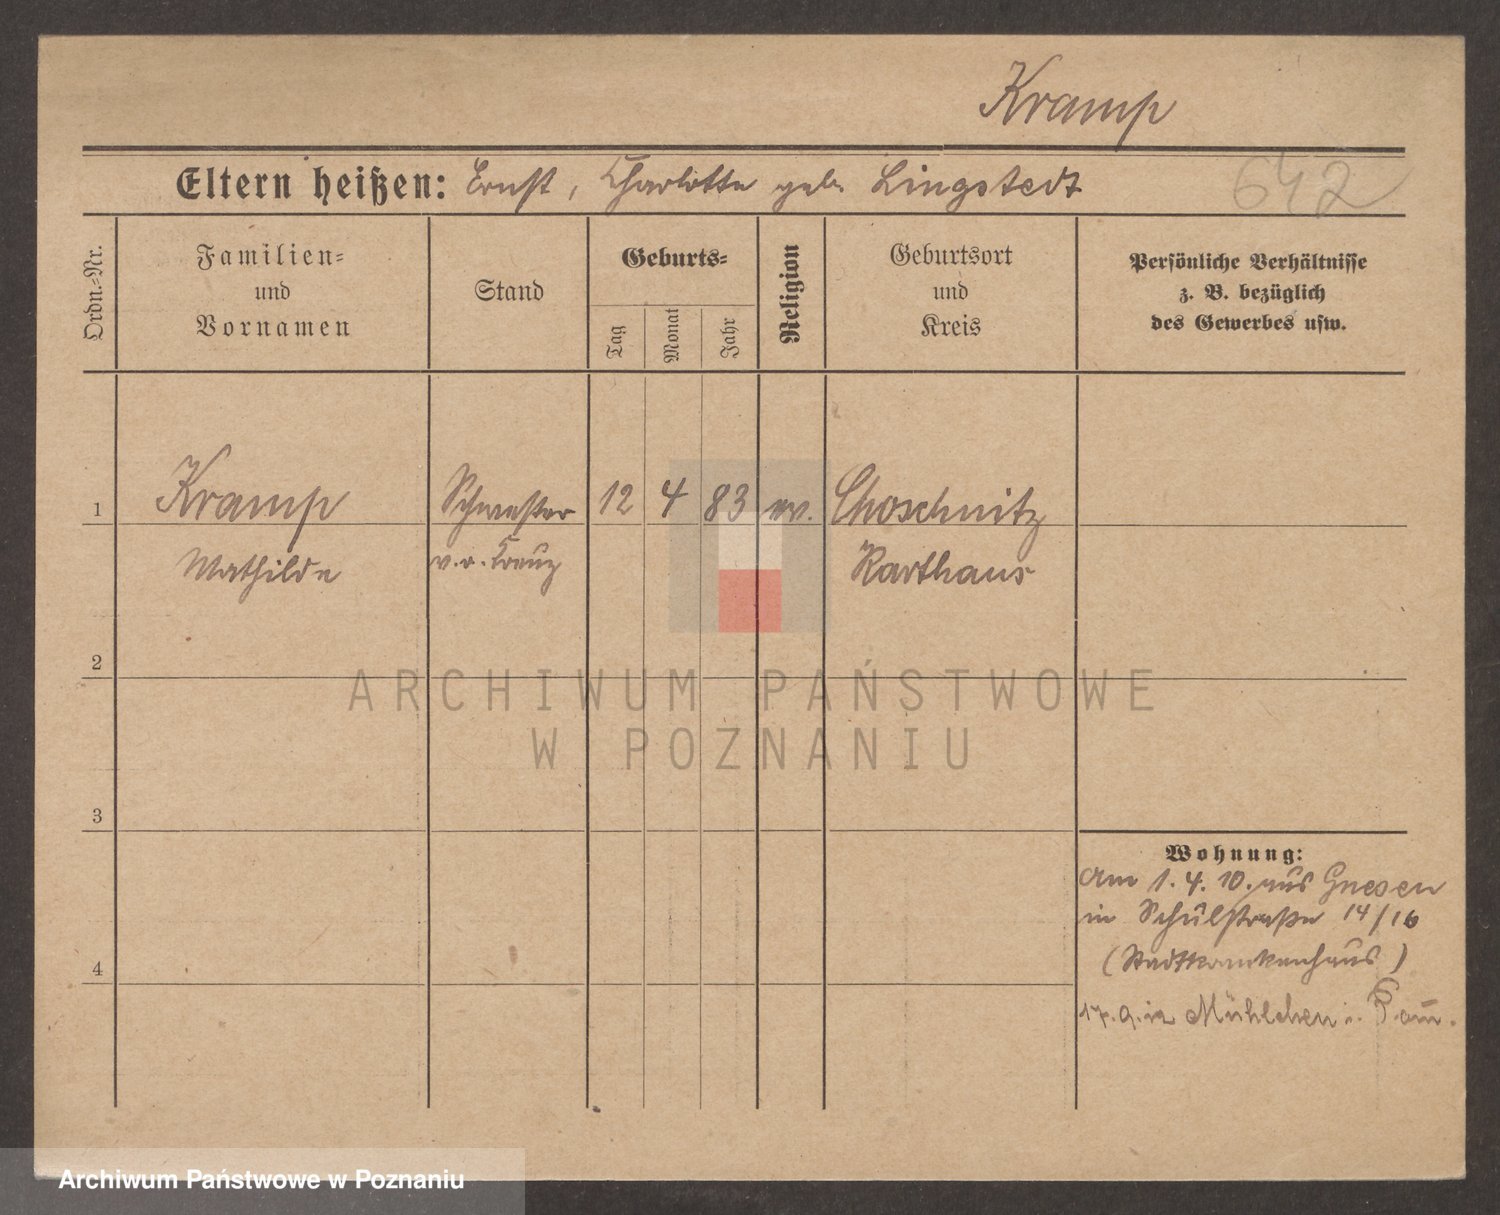 Kramp
Eltern heißen: Ernst, Charlotte geb. Lingstedt
642
Ordn.-Nr.
Familien-
und
Vornamen
Stand
Geburts-
Tag
Monat
Jahr
Religion
Geburtsort
und
Kreis
Persönliche Verhältnisse
z. B. bezüglich
des Gewerbes usw.
1
Kramp
Mathilde
Schwester
v. r. Kreuz
12
4
83
ev.
Choschnitz
Karthaus
2
3
4
Wohnung:
Am 1. 4. 10. aus Gnesen
in Schulstraße 14/16
(Stadtkrankenhaus)
17. 9. in Mühlchen
ARCHIWUM PAŃSTWOWE
W POZNANIU
Archiwum Państwowe w Poznaniu